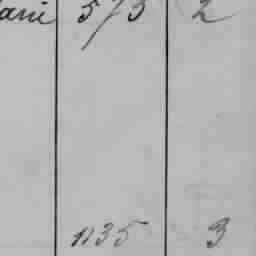 573 2
1135 3